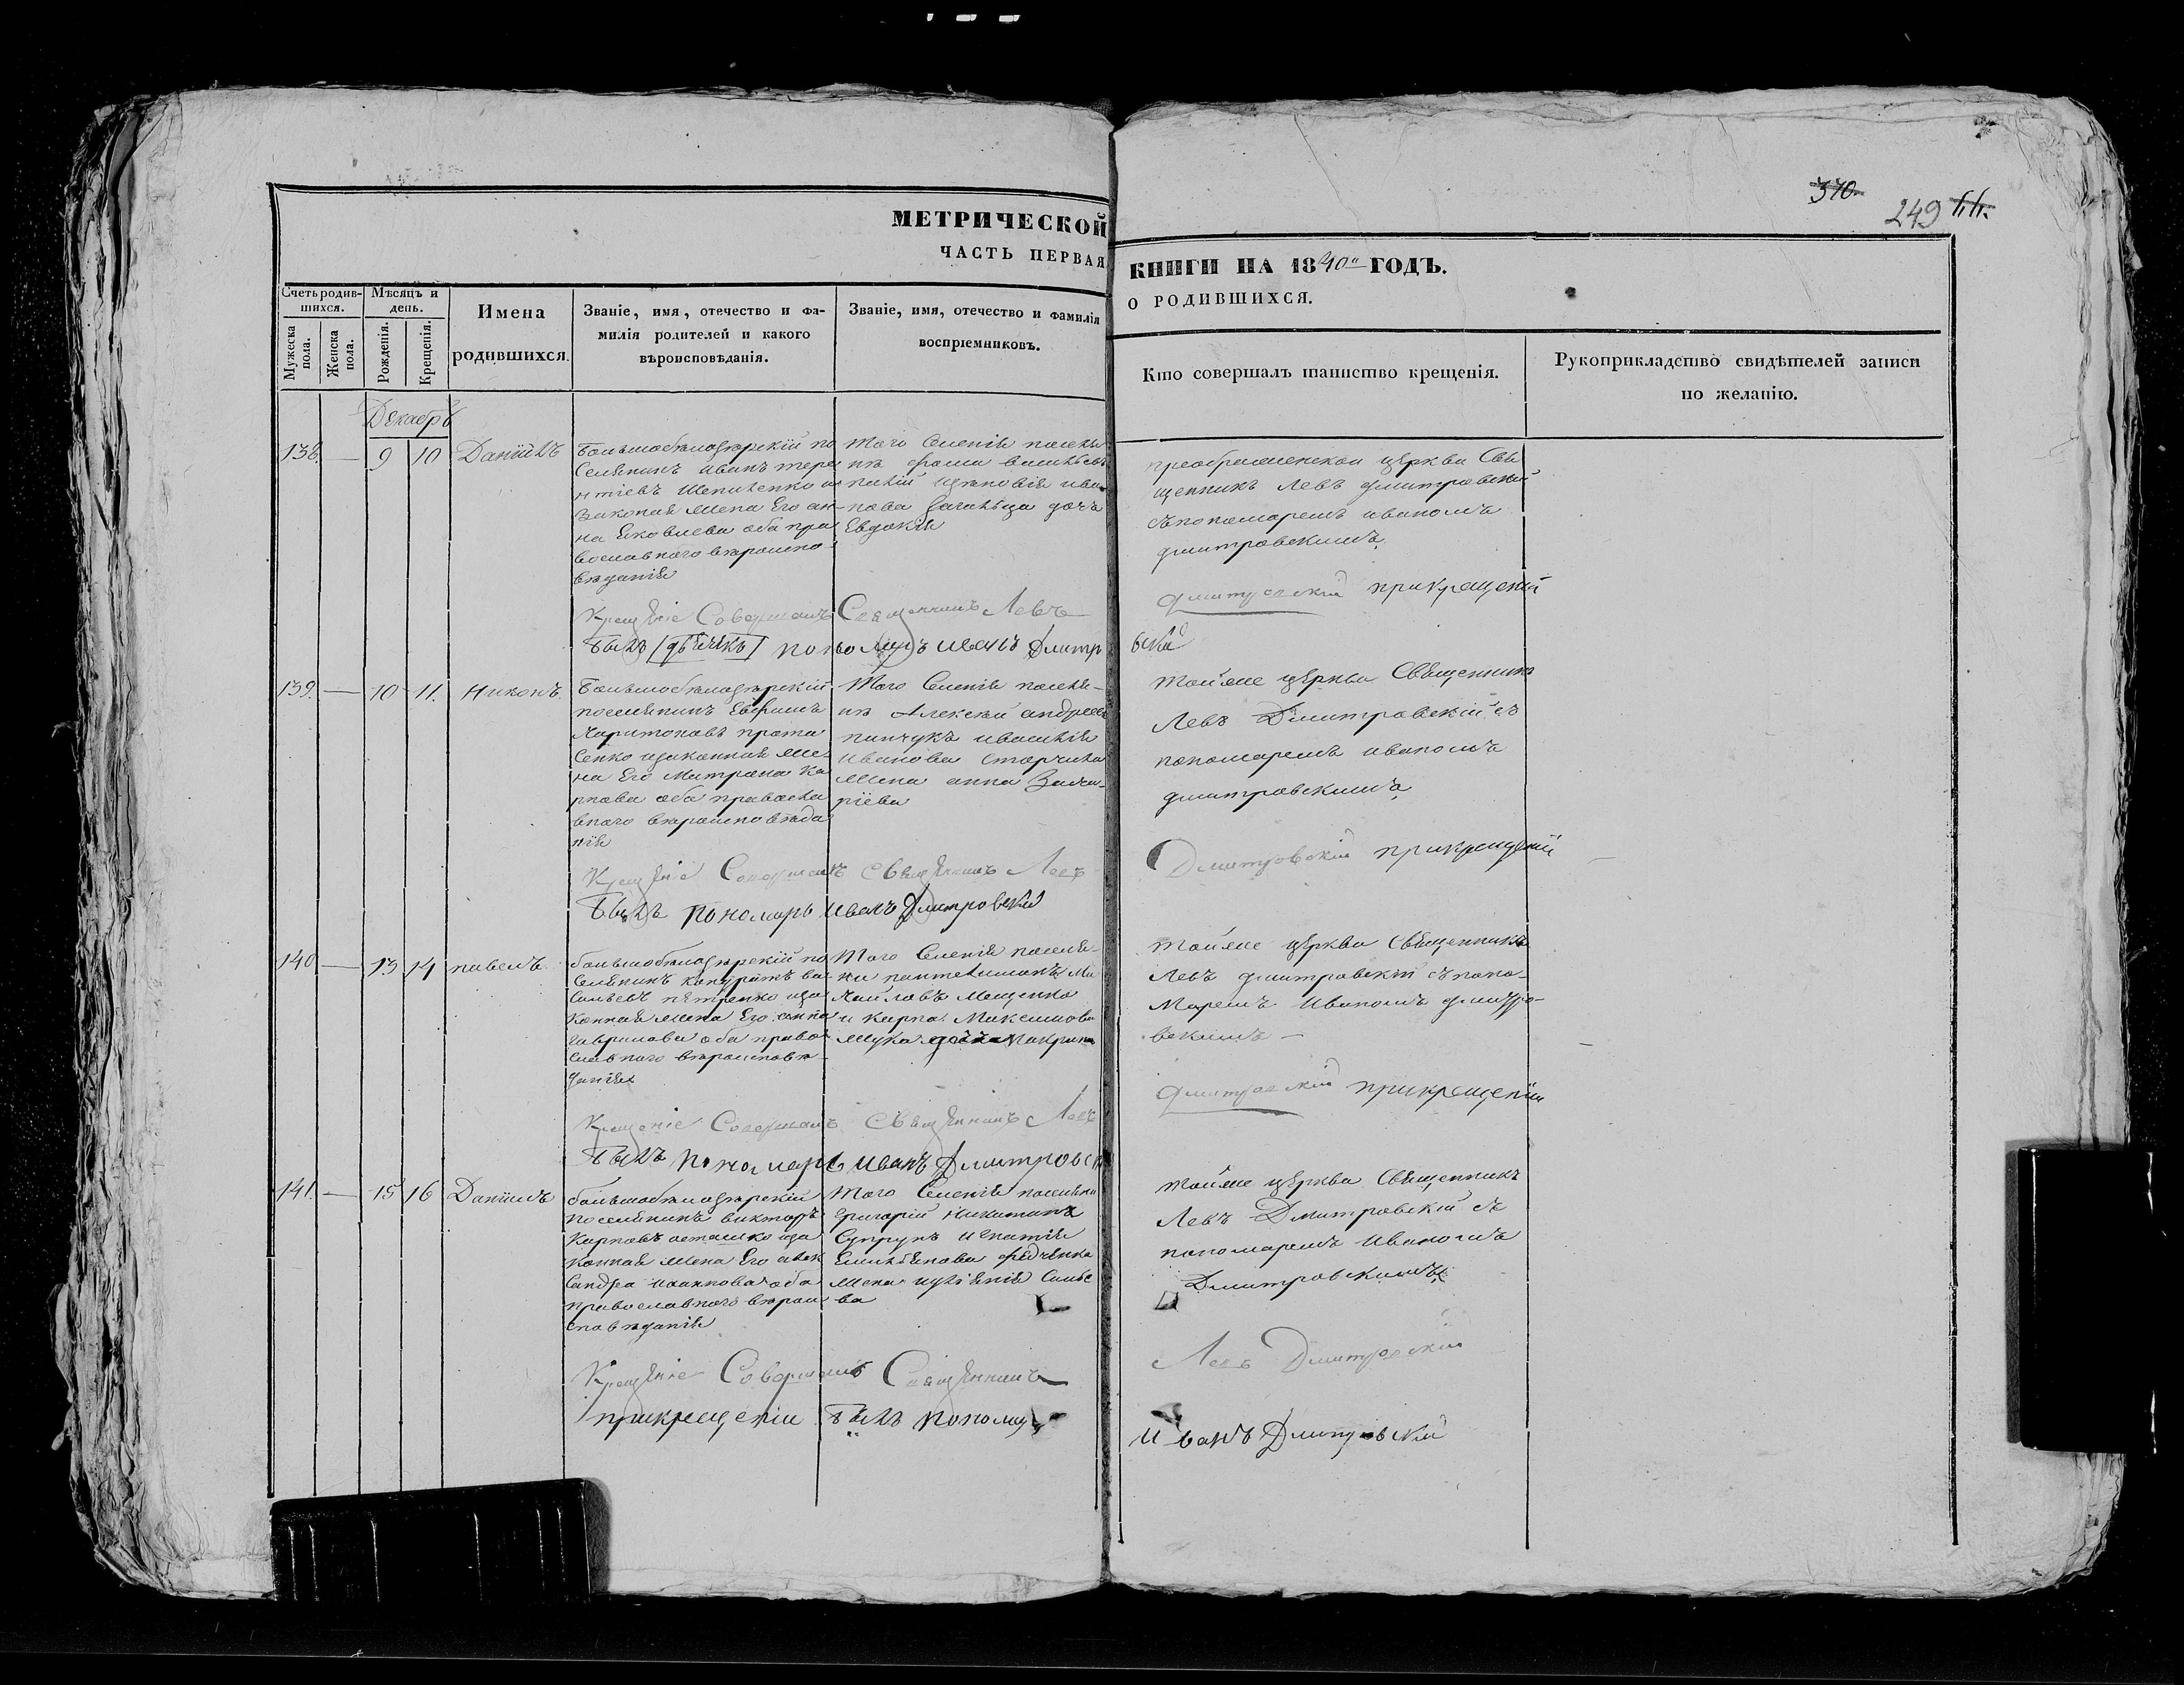 370.
249
МЕТРИЧЕСКОЙ
ЧАСТЬ ПЕРВАЯ
КНИГИ НА 1840й ГОДЪ.
О РОДИВШИХСЯ.
Счетъ родив-
шихся.
Мѣсяцъ и
день.
Мужеска
пола.
Женска
пола.
Рожденія.
Крещенія.
Имена
родившихся.
Званіе, имя, отечество и фа-
милія родителей и какого
вѣроисповѣданія.
Званіе, имя, отечество и фамилія
воспріемниковъ.
Кто совершалъ таинство крещенія.
Рукоприкладство свидѣтелей записи
по желанію.
Декабрь
138. — 9 10 Даніилъ
Большобѣлозѣрскій по
селянинъ иванъ тере
нтіевъ Шепиленко и
законая жена Его ан-
на Яковлева оба пра
вославного вѣроиспо-
вѣданія
Того Селенія поселя
нъ фома
ива
нова дочь
Евдокія
преображенской церкви Свя
щенникъ Левъ дмитровский
съпономаремъ иваномъ
дмитровскимъ
Крещеніе Совершалъ Священникъ Левъ
дмитровский прикрещеніи
былъ дьячекъ иванъ Дмитр
вский
139. — 10 11. Никонъ
Большобѣлозѣрскій
поселянинъ Евфимъ
Харитоновъ прота
сенко изаконная же
на Его Матрона Ка
рпова оба правосла
вного вѣроисповѣда
нія
Того Селенія поселя-
нъ Алексѣй андреевъ
пинчукъ
иванова
жена анна Заха-
ріева
тойже церкви Священникъ
Левъ Дмитровскій съ
пономаремъ иваномъ
дмитровскимъ
Крещеніе Совершалъ Священникъ Левъ
Дмитровский прикрещеніи
былъ пономарь иванъ Дмитровский
140 — 13 14 павелъ
большобѣлозѣрскій по
селянинъ кондратъ ва
сильевъ петренко иза
конная жена Его анна
гаврилова оба право
славного вѣроисповѣ
данія
Того Селенія поселя-
ни пантелимонъ Ми
хайловъ Мещенко
и карпа Максимова
Жука дочь
тойже церкви Священникъ
Левъ дмитровскій съ поно-
маремъ Иваномъ дмитро-
вскимъ —
Крещеніе Совершалъ Священникъ Левъ
дмитровский прикрещеніи
былъ пономарь иванъ Дмитровск
141. — 15 16 Даніилъ
большобѣлозѣрский
поселянинъ викторъ
Карповъ осташко иза
конная жена Его алек
сандра иоаннова оба
православного вѣрои
сповѣданія
Того Селенія поселяни
григорій Никитинъ
Супрунъ Игнатія
Емильянова федченка
жена
ва
тойже церкви Священникъ
Левъ Дмитровскій съ
пономаремъ Иваномъ
Дмитровскимъ
Крещеніе Совершалъ Священникъ
Левъ Дмитровский
прикрещеніи былъ пономарь
иванъ Дмитровский